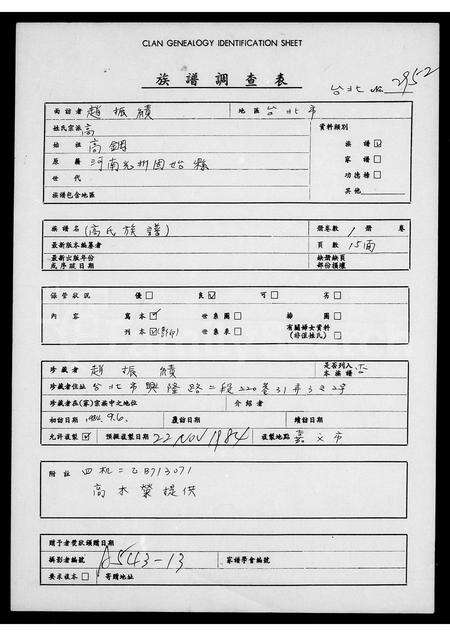 CLAN GENEALOGY IDENTIFICATION SHEET
族譜調查表
台北 No. 2952
面訪者 趙振績 地區 台北市
姓氏宗派 高 資料類別
始祖 高 族譜 ☑
原籍 河南光州固始縣 家譜 □
世代 功德榜 □
族譜包含地區 其他
族譜名 (高氏族譜) 冊卷數 1 冊 卷
最新版本編纂者 頁數 15面
最新出版年份 缺冊缺頁
或序跋日期 部份損壞
保管狀況 優 □ 良 ☑ 可 □ 劣 □
內容 寫本 ☑ 世系圖 □ 插圖 □
刊本 ☑ (影印) 世系表 □ 有關婦女資料 □
(非僅姓氏)
珍藏者 趙振績 是否列入
本族譜
珍藏者住址 台北市興隆路二段220巷31弄3之2号
珍藏者在(家)宗族中之地位 介紹者
初訪日期 1984.9.6. 覆訪日期 續訪日期
允許複製 ☑ 預擬複製日期 22 NOV 1984 複製地點 嘉义市
附註 四机=GB713071
高木榮提供
贈予者獎狀頒贈日期
攝影者編號 A543-13 家譜學會編號
要求複本 □ 寄贈地址